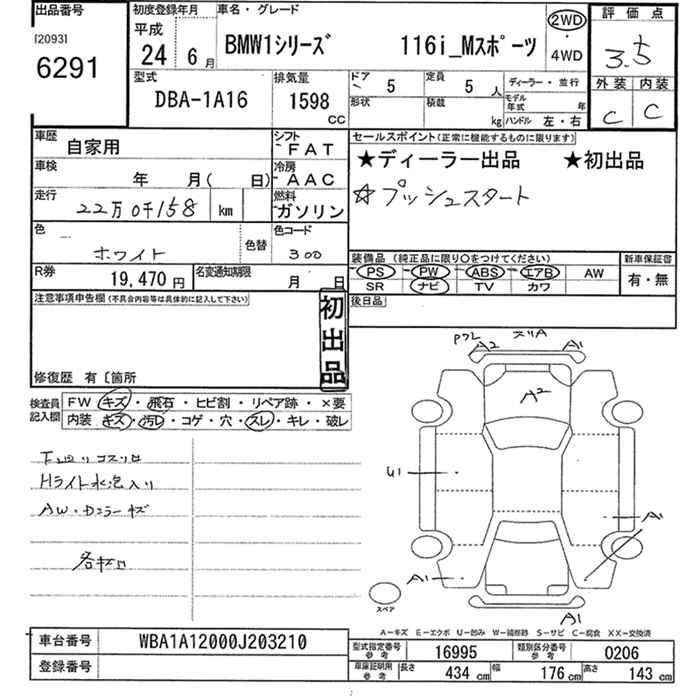 出品番号
[2093]
6291
初度登録年月
平成
24 6月
車名・グレード
BMW1シリーズ 116i_Mスポーツ
2WD
・
4WD
評価点
3.5
外装 内装
C C
型式
DBA-1A16
排気量
1598
CC
ドア 5
定員 5人
ディーラー・並行
形状
積載 kg
モデル年式 年
ハンドル 左・右
車歴
自家用
シフト
FAT
車検
年 月( 日)
冷房
AAC
走行
22万0千158 km
燃料
ガソリン
色
ホワイト
色替
色コード
300
R券
19,470円
名変通知期限
月 日
セールスポイント(正常に機能するものに限ります)
★ディーラー出品 ★初出品
☆プッシュスタート
装備品(純正品に限り○をつけてください)
PS PW ABS エアB AW
SR ナビ TV カワ
新車保証書
有・無
後日品
注意事項申告欄(不具合内容等は具体的に記入して下さい)
初出品
修復歴 有〔箇所
検査員記入欄
FW キズ・飛石・ヒビ割・リペア跡・×要
内装 キズ・汚レ・コゲ・穴・スレ・キレ・破レ
下回りコスリ
Hライト水泡入り
AW・Dミラーキズ
スリA
A2
A1
A2
U1
A1
A1
A1
スペア
A-キズ E-エクボ U-凹み W-補修跡 S-サビ C-腐食 XX-交換済
車台番号
WBA1A12000J203210
登録番号
型式指定番号
参考
16995
類別区分番号
参考
0206
車庫証明用
参考
長さ 434 cm
幅 176 cm
高さ 143 cm